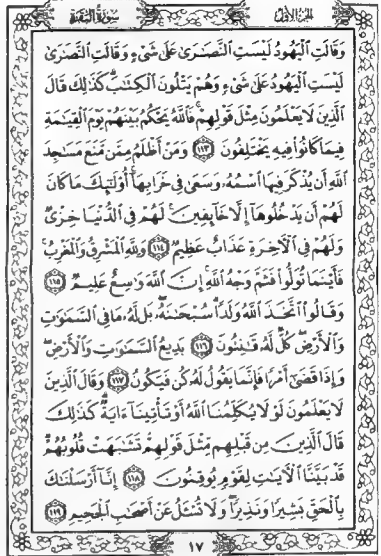 الجزء الأول
سورة البقرة
وَقَالَتِ الْيَهُودُ لَيْسَتِ النَّصَـٰرَىٰ عَلَىٰ شَىْءٍ وَقَالَتِ النَّصَـٰرَىٰ
لَيْسَتِ الْيَهُودُ عَلَىٰ شَىْءٍ وَهُمْ يَتْلُونَ الْكِتَـٰبَ ۗ كَذَٰلِكَ قَالَ
الَّذِينَ لَا يَعْلَمُونَ مِثْلَ قَوْلِهِمْ ۚ فَاللَّهُ يَحْكُمُ بَيْنَهُمْ يَوْمَ الْقِيَـٰمَةِ
فِيمَا كَانُوا۟ فِيهِ يَخْتَلِفُونَ ١١٣ وَمَنْ أَظْلَمُ مِمَّن مَّنَعَ مَسَـٰجِدَ
اللَّهِ أَن يُذْكَرَ فِيهَا اسْمُهُۥ وَسَعَىٰ فِى خَرَابِهَآ ۚ أُو۟لَـٰٓئِكَ مَا كَانَ
لَهُمْ أَن يَدْخُلُوهَآ إِلَّا خَآئِفِينَ ۚ لَهُمْ فِى الدُّنْيَا خِزْىٌ
وَلَهُمْ فِى الْـَٔاخِرَةِ عَذَابٌ عَظِيمٌ ١١٤ وَلِلَّهِ الْمَشْرِقُ وَالْمَغْرِبُ ۚ
فَأَيْنَمَا تُوَلُّوا۟ فَثَمَّ وَجْهُ اللَّهِ ۚ إِنَّ اللَّهَ وَٰسِعٌ عَلِيمٌ ١١٥
وَقَالُوا۟ اتَّخَذَ اللَّهُ وَلَدًا ۗ سُبْحَـٰنَهُۥ ۖ بَل لَّهُۥ مَا فِى السَّمَـٰوَٰتِ
وَالْأَرْضِ ۖ كُلٌّ لَّهُۥ قَـٰنِتُونَ ١١٦ بَدِيعُ السَّمَـٰوَٰتِ وَالْأَرْضِ ۖ
وَإِذَا قَضَىٰٓ أَمْرًا فَإِنَّمَا يَقُولُ لَهُۥ كُن فَيَكُونُ ١١٧ وَقَالَ الَّذِينَ
لَا يَعْلَمُونَ لَوْلَا يُكَلِّمُنَا اللَّهُ أَوْ تَأْتِينَآ ءَايَةٌ ۗ كَذَٰلِكَ
قَالَ الَّذِينَ مِن قَبْلِهِم مِّثْلَ قَوْلِهِمْ ۘ تَشَـٰبَهَتْ قُلُوبُهُمْ ۗ
قَدْ بَيَّنَّا الْـَٔايَـٰتِ لِقَوْمٍ يُوقِنُونَ ١١٨ إِنَّآ أَرْسَلْنَـٰكَ
بِالْحَقِّ بَشِيرًا وَنَذِيرًا ۖ وَلَا تُسْـَٔلُ عَنْ أَصْحَـٰبِ الْجَحِيمِ ١١٩
١٧